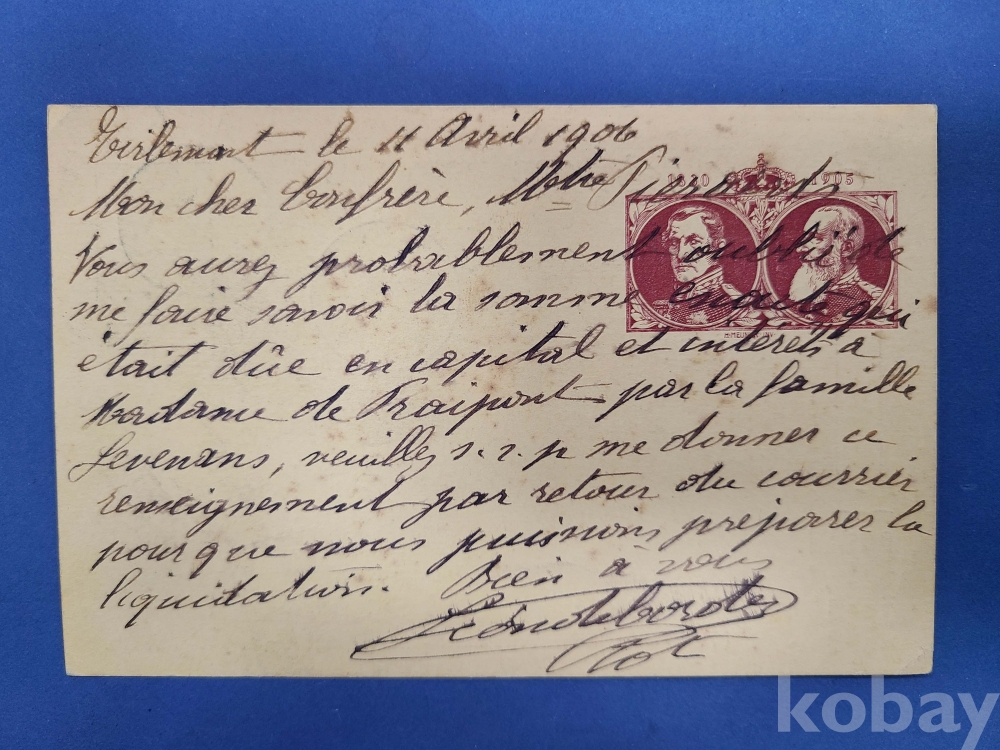 Tirlemont le 11 Avril 1906
Mon cher Confrère,
1830 1905
Vous aurez probablement oublié de
me faire savoir la somme exacte qui
était dûe en capital et intérêts à
Madame de Fraipont par la famille
Sevenans, veuillez s. v. p me donner ce
renseignement par retour du courrier
pour que nous puissions préparer la
liquidation. Bien à vous
kobay